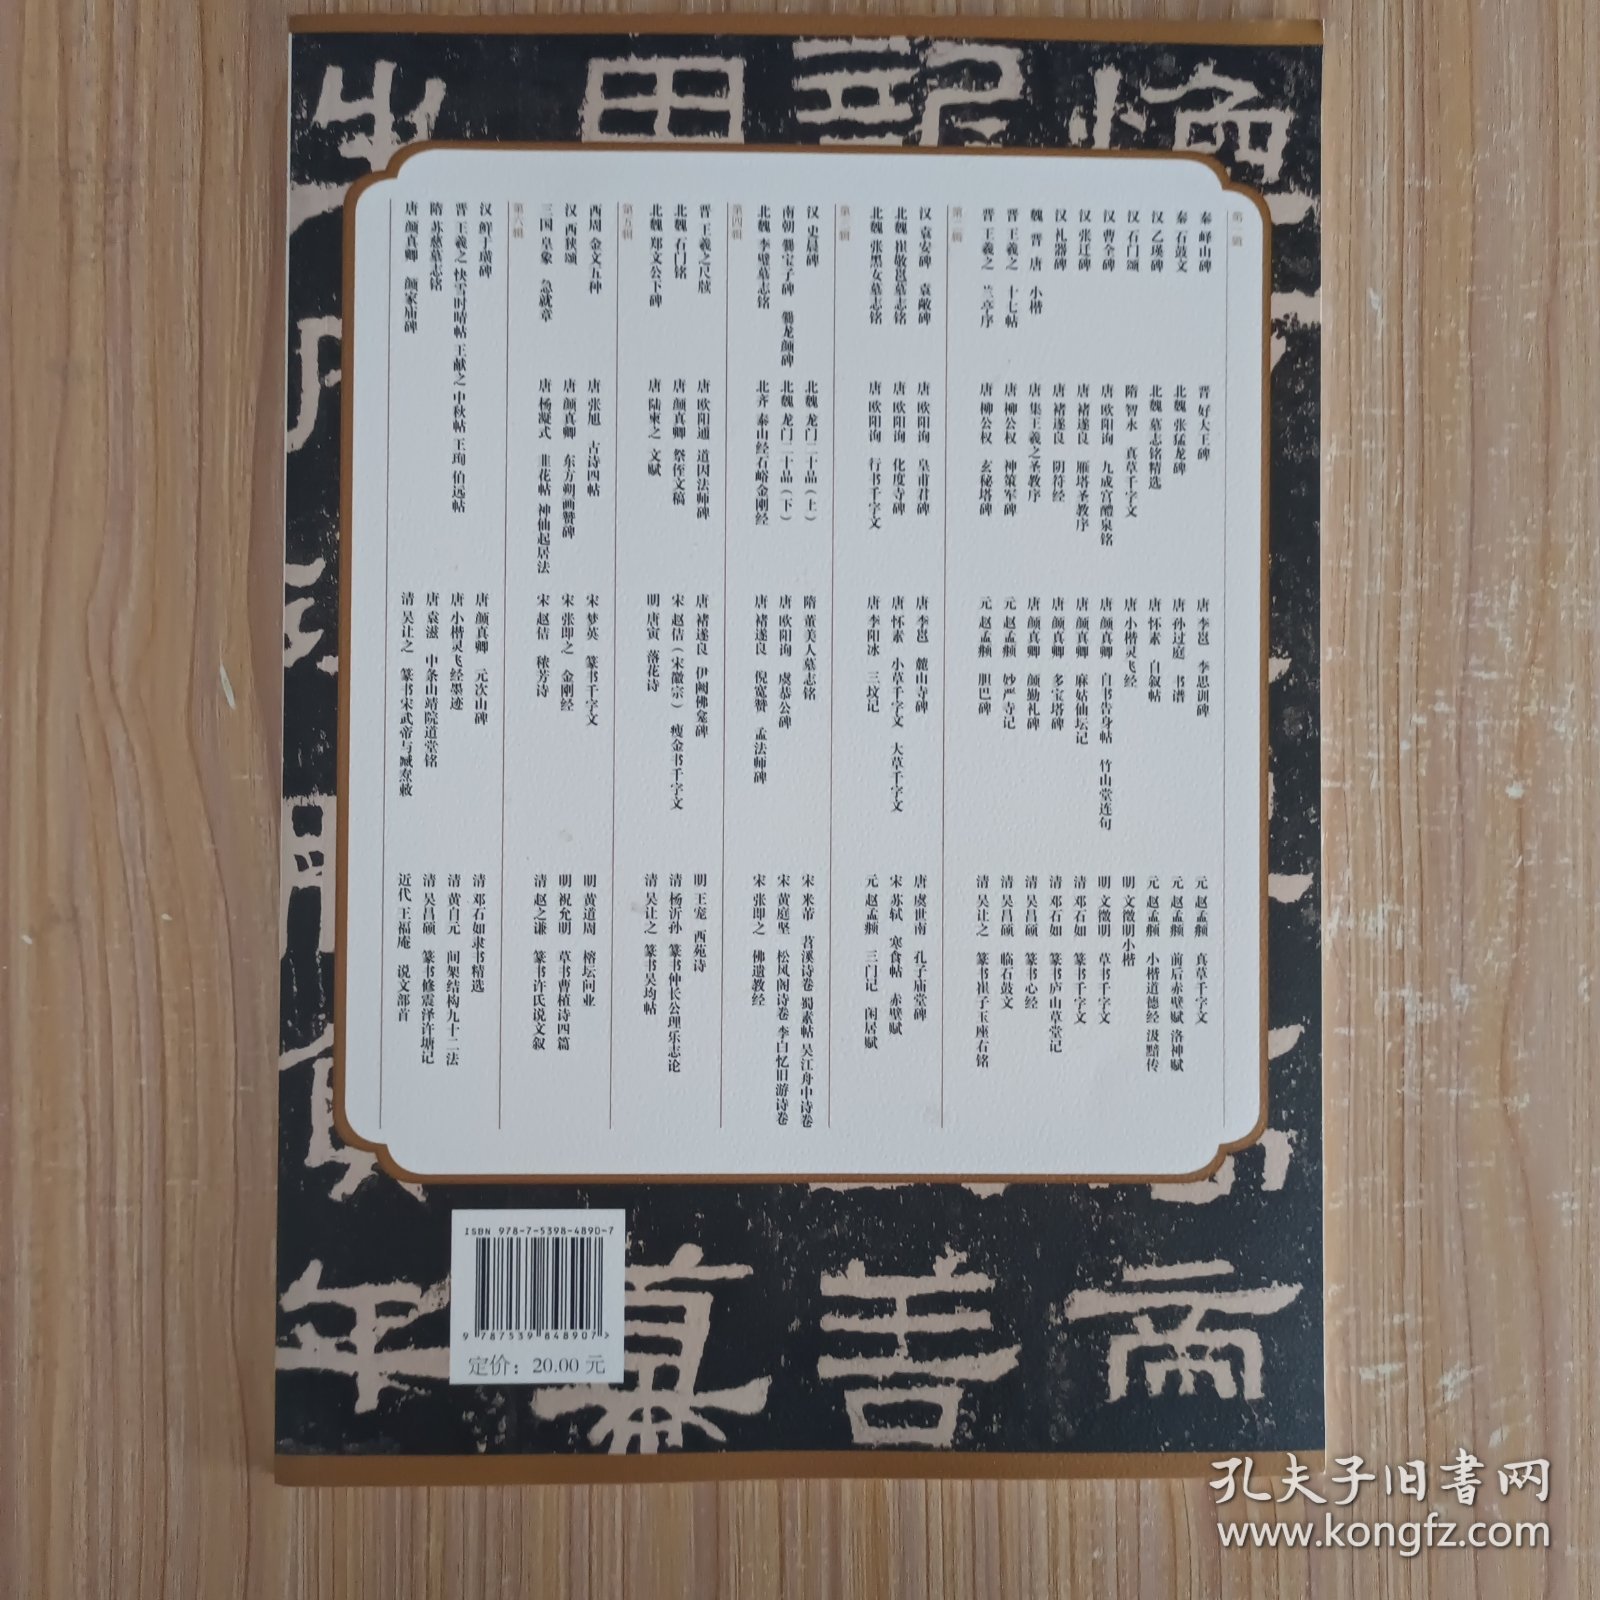 第一辑
秦 峄山碑
秦 石鼓文
汉 乙瑛碑
汉 石门颂
汉 曹全碑
汉 张迁碑
汉 礼器碑
魏 晋 唐 小楷
晋 王羲之 十七帖
晋 王羲之 兰亭序
晋 好大王碑
北魏 张猛龙碑
北魏 墓志铭精选
隋 智永 真草千字文
唐 欧阳询 九成宫醴泉铭
唐 褚遂良 雁塔圣教序
唐 褚遂良 阴符经
唐 集王羲之圣教序
唐 柳公权 神策军碑
唐 柳公权 玄秘塔碑
唐 李邕 李思训碑
唐 孙过庭 书谱
唐 怀素 自叙帖
唐 小楷灵飞经
唐 颜真卿 自书告身帖 竹山堂连句
唐 颜真卿 麻姑仙坛记
唐 颜真卿 多宝塔碑
唐 颜真卿 颜勤礼碑
元 赵孟頫 妙严寺记
元 赵孟頫 胆巴碑
元 赵孟頫 真草千字文
元 赵孟頫 前后赤壁赋 洛神赋
元 赵孟頫 小楷道德经 汲黯传
明 文徵明小楷
明 文徵明 草书千字文
清 邓石如 篆书千字文
清 邓石如 篆书庐山草堂记
清 吴昌硕 篆书心经
清 吴昌硕 临石鼓文
清 吴让之 篆书崔子玉座右铭
第二辑
汉 袁安碑 袁敞碑
北魏 崔敬邕墓志铭
北魏 张黑女墓志铭
唐 欧阳询 皇甫君碑
唐 欧阳询 化度寺碑
唐 欧阳询 行书千字文
唐 李邕 麓山寺碑
唐 怀素 小草千字文 大草千字文
唐 李阳冰 三坟记
唐 虞世南 孔子庙堂碑
宋 苏轼 寒食帖 赤壁赋
元 赵孟頫 三门记 闲居赋
第三辑
汉 史晨碑
南朝 爨宝子碑 爨龙颜碑
北魏 李璧墓志铭
北魏 龙门二十品（上）
北魏 龙门二十品（下）
北齐 泰山经石峪金刚经
隋 董美人墓志铭
唐 欧阳询 虞恭公碑
唐 褚遂良 倪宽赞 孟法师碑
宋 米芾 苕溪诗卷 蜀素帖 吴江舟中诗卷
宋 黄庭坚 松风阁诗卷 李白忆旧游诗卷
宋 张即之 佛遗教经
第四辑
晋 王羲之尺牍
北魏 石门铭
北魏 郑文公下碑
唐 欧阳通 道因法师碑
唐 颜真卿 祭侄文稿
唐 陆柬之 文赋
唐 褚遂良 伊阙佛龛碑
宋 赵佶（宋徽宗） 瘦金书千字文
明 唐寅 落花诗
明 王宠 西苑诗
清 杨沂孙 篆书仲长公理乐志论
清 吴让之 篆书吴均帖
第五辑
西周 金文五种
汉 西狭颂
三国 皇象 急就章
唐 张旭 古诗四帖
唐 颜真卿 东方朔画赞碑
唐 杨凝式 韭花帖 神仙起居法
宋 梦英 篆书千字文
宋 张即之 金刚经
宋 赵佶 秾芳诗
明 黄道周 榕坛问业
明 祝允明 草书曹植诗四篇
清 赵之谦 篆书许氏说文叙
第六辑
汉 鲜于璜碑
晋 王羲之 快雪时晴帖 王献之 中秋帖 王珣 伯远帖
隋 苏慈墓志铭
唐 颜真卿 颜家庙碑
唐 颜真卿 元次山碑
唐 小楷灵飞经墨迹
唐 袁滋 中条山靖院道堂铭
清 吴让之 篆书宋武帝与臧焘敕
清 邓石如隶书精选
清 黄自元 间架结构九十二法
清 吴昌硕 篆书修震泽许塘记
近代 王福庵 说文部首
ISBN 978-7-5398-4890-7
9 787539 848907 >
定价：20.00 元
孔夫子旧书网
www.kongfz.com